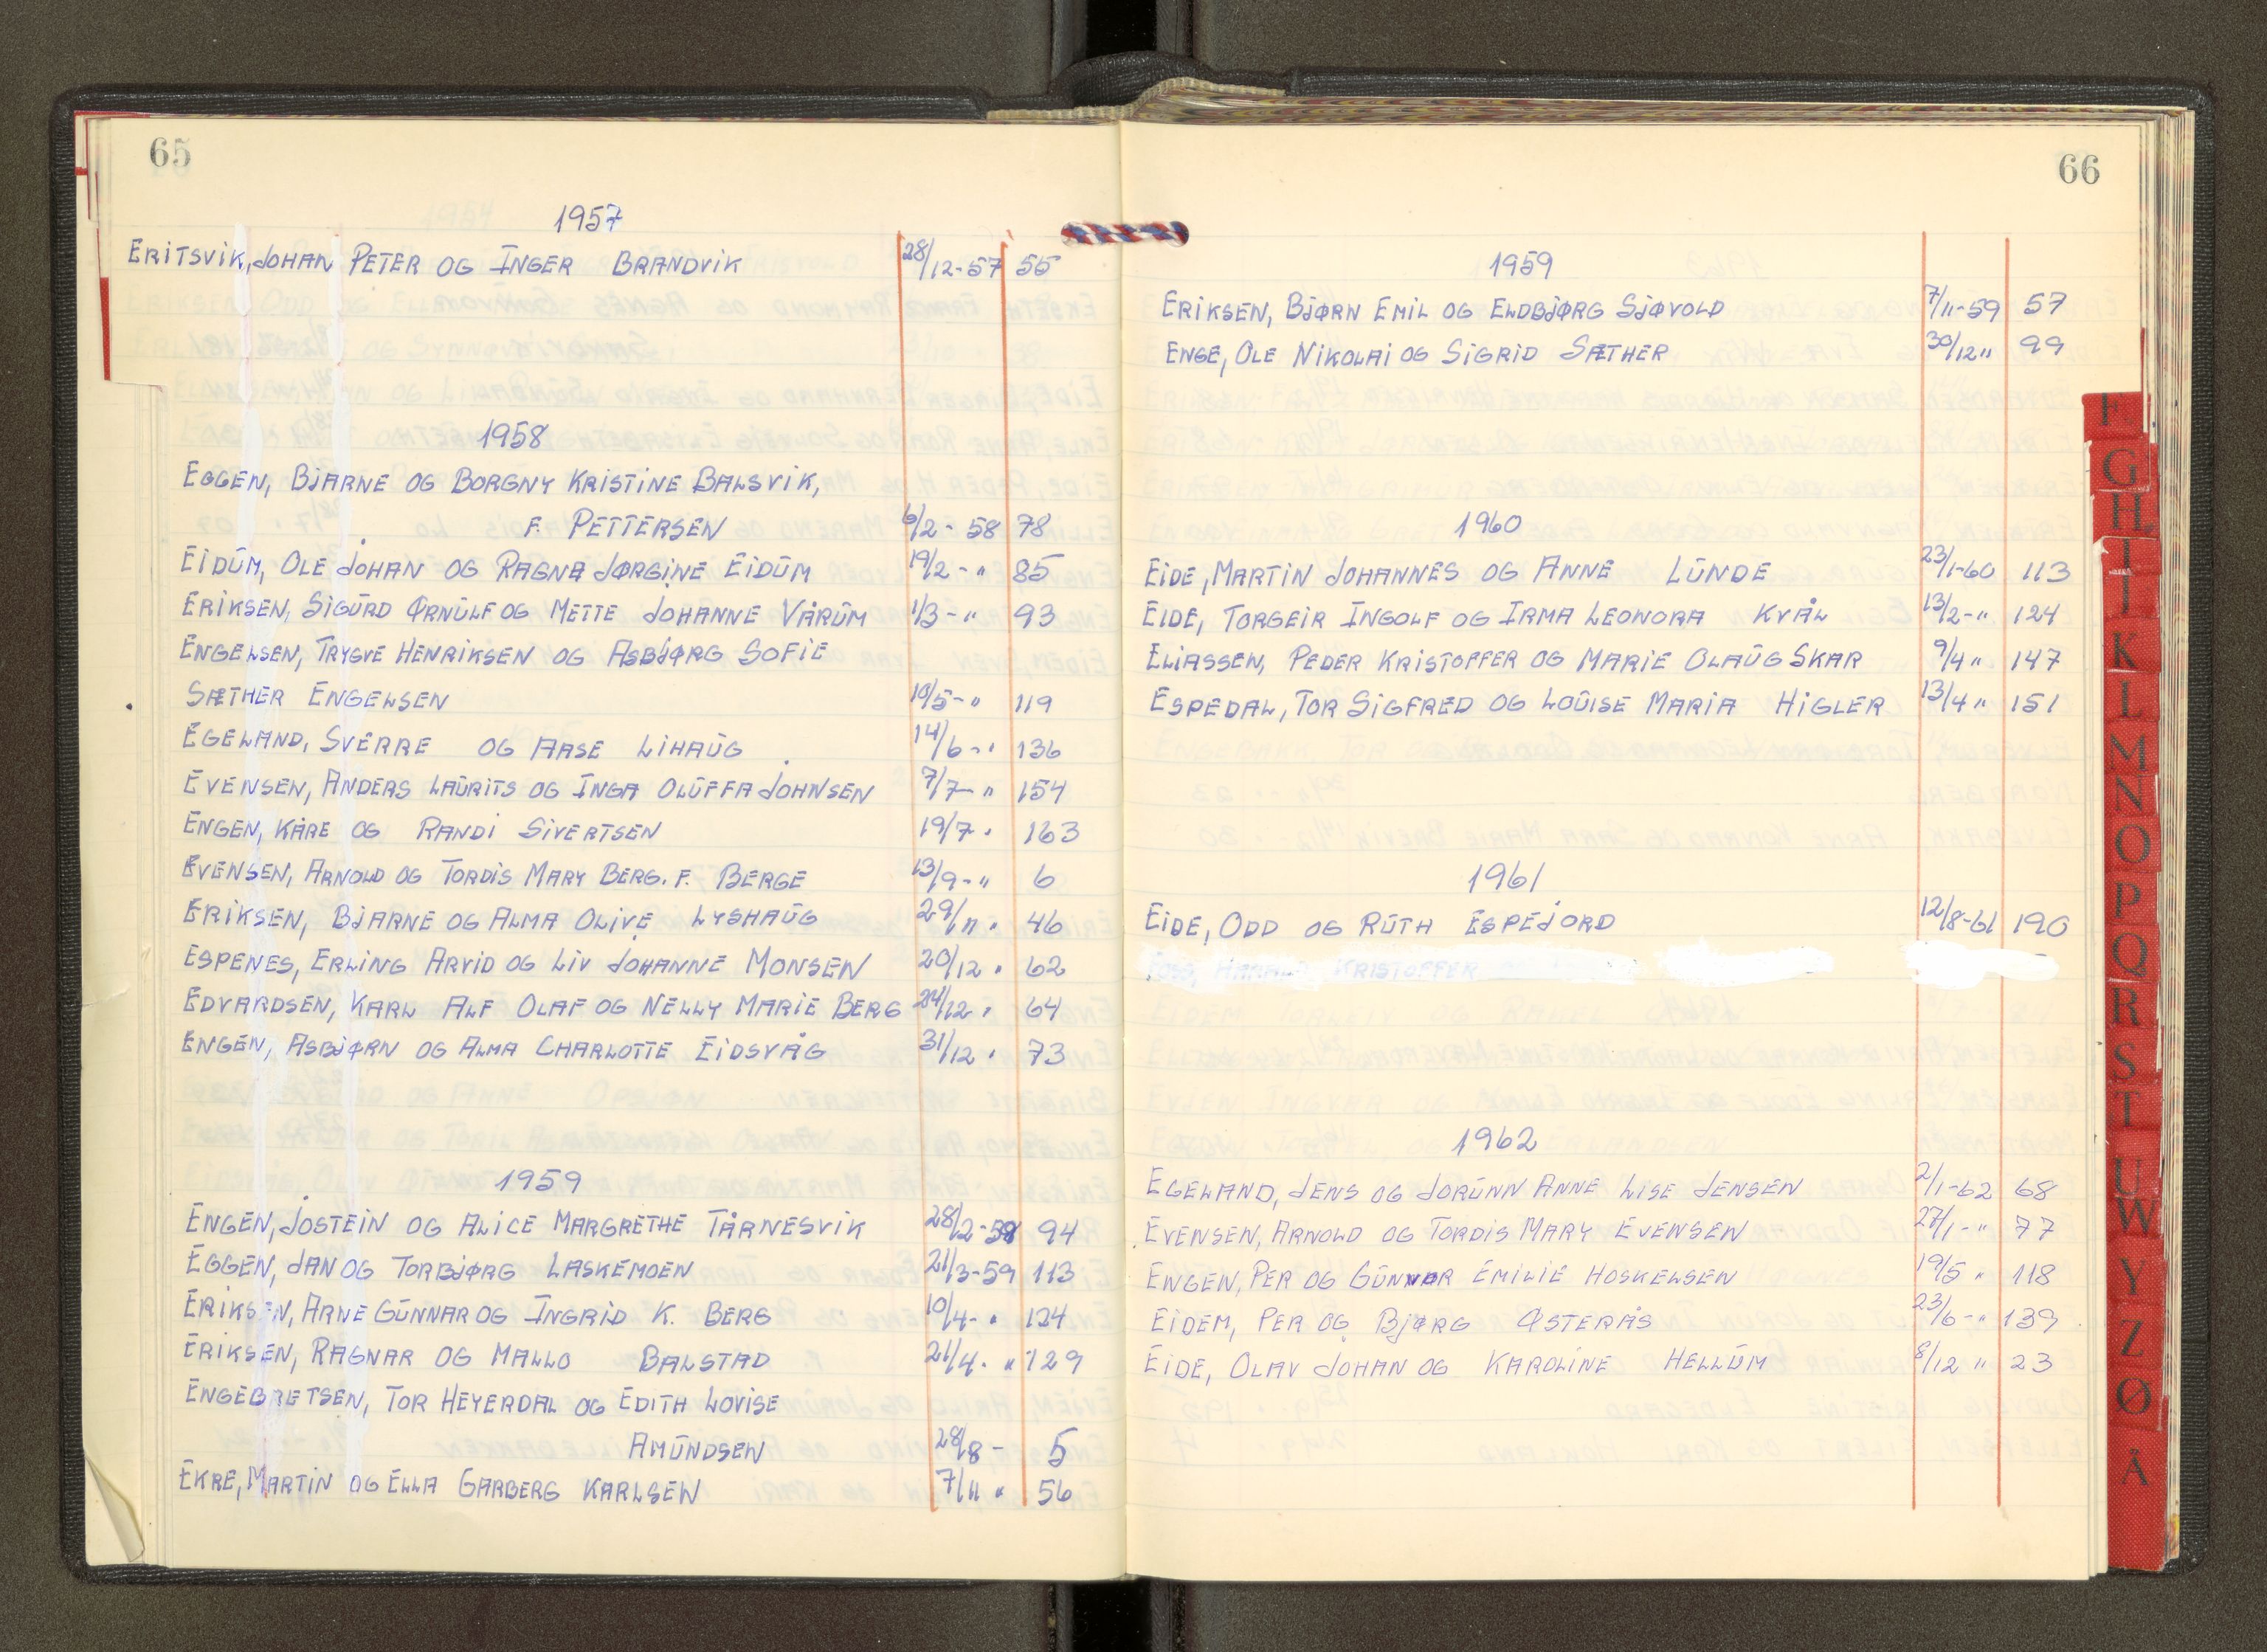 65
1957
ERITSVIK, JOHAN PETER OG INGER BRANDVIK 28/12-57 55
1958
EGGEN, BJARNE OG BORGNY KRISTINE BALSVIK,
F. PETTERSEN 6/2-58 78
EIDŪM, OLE JOHAN OG RAGNA JØRGINE EIDŪM 19/2-" 85
ERIKSEN, SIGŪRD ØRNŪLF OG METTE JOHANNE VÅRŪM 1/3-" 93
ENGELSEN, TRYGVE HENRIKSEN OG ASBJØRG SOFIE
SÆTHER ENGELSEN 10/5-" 119
EGELAND, SVERRE OG AASE LIHAŪG 14/6-" 136
EVENSEN, ANDERS LAŪRITS OG INGA OLŪFFA JOHNSEN 7/7-" 154
ENGEN, KÅRE OG RANDI SIVERTSEN 19/7 " 163
EVENSEN, ARNOLD OG TORDIS MARY BERG. F. BERGE 13/9-" 6
ERIKSEN, BJARNE OG ALMA OLIVE LYSHAŪG 29/11 " 46
ESPENES, ERLING ARVID OG LIV JOHANNE MONSEN 20/12 " 62
EDVARDSEN, KARL ALF OLAF OG NELLY MARIE BERG 24/12 " 64
ENGEN, ASBJØRN OG ALMA CHARLOTTE EIDSVÅG 31/12 " 73
1959
ENGEN, JOSTEIN OG ALICE MARGRETHE TÅRNESVIK 28/2-59 94
EGGEN, JAN OG TORBJØRG LASKEMOEN 21/3-59 113
ERIKSEN, ARNE GŪNNAR OG INGRID K. BERG 10/4-" 124
ERIKSEN, RAGNAR OG MALLO BALSTAD 21/4-" 129
ENGEBRETSEN, TOR HEYERDAL OG EDITH LOVISE
AMŪNDSEN 28/8- 5
EKRE, MARTIN OG ELLA GARBERG KARLSEN 7/11 " 56
66
1959
ERIKSEN, BJØRN EMIL OG ELDBJØRG SJØVOLD 7/11-59 57
ENGE, OLE NIKOLAI OG SIGRID SÆTHER 30/12 " 99
1960
EIDE, MARTIN JOHANNES OG ANNE LŪNDE 23/1-60 113
EIDE, TORGEIR INGOLF OG IRMA LEONORA KVÅL 13/2-" 124
ELIASSEN, PEDER KRISTOFFER OG MARIE OLAŪG SKAR 9/4 " 147
ESPEDAL, TOR SIGFRED OG LOŪISE MARIA HIGLER 13/4 " 151
1961
EIDE, ODD OG RŪTH ESPEJORD 12/8-61 190
KRISTOFFER
1962
EGELAND, JENS OG JORŪNN ANNE LISE JENSEN 2/1-62 68
EVENSEN, ARNOLD OG TORDIS MARY EVENSEN 27/1-" 77
ENGEN, PER OG GŪNVOR EMILIE HOSKELSEN 19/5 " 118
EIDEM, PER OG BJØRG ØSTERÅS 23/6-" 139
EIDE, OLAV JOHAN OG KAROLINE HELLŪM 8/12 " 23
F
G
H
I
J
K
L
M
N
O
P
Q
R
S
T
U
W
Y
Z
Ø
Å